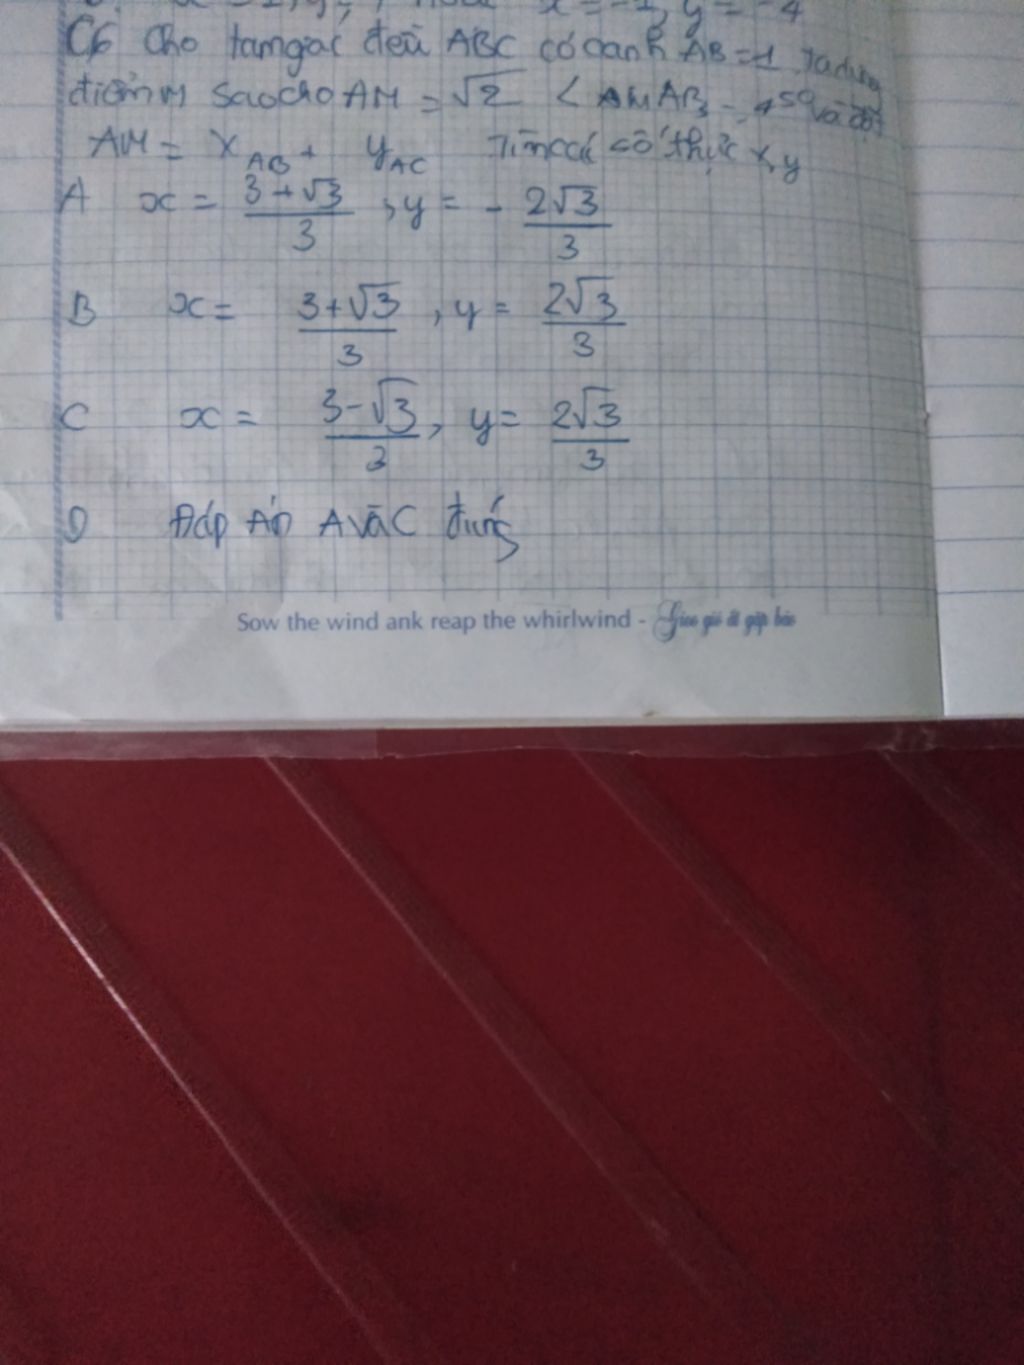 C6 Cho tam giác đều ABC có cạnh AB = 1. Ta dựng
điểm M sao cho AM = √2 < MAB = 45° và đặt
AM = x AB + y AC Tìm các số thực x, y
A x = (3+√3)/3 , y = - 2√3/3
B x = (3+√3)/3 , y = 2√3/3
C x = (3-√3)/3 , y = 2√3/3
D Đáp Án A và C đúng
Sow the wind ank reap the whirlwind - Gieo gió ắt gặp bão